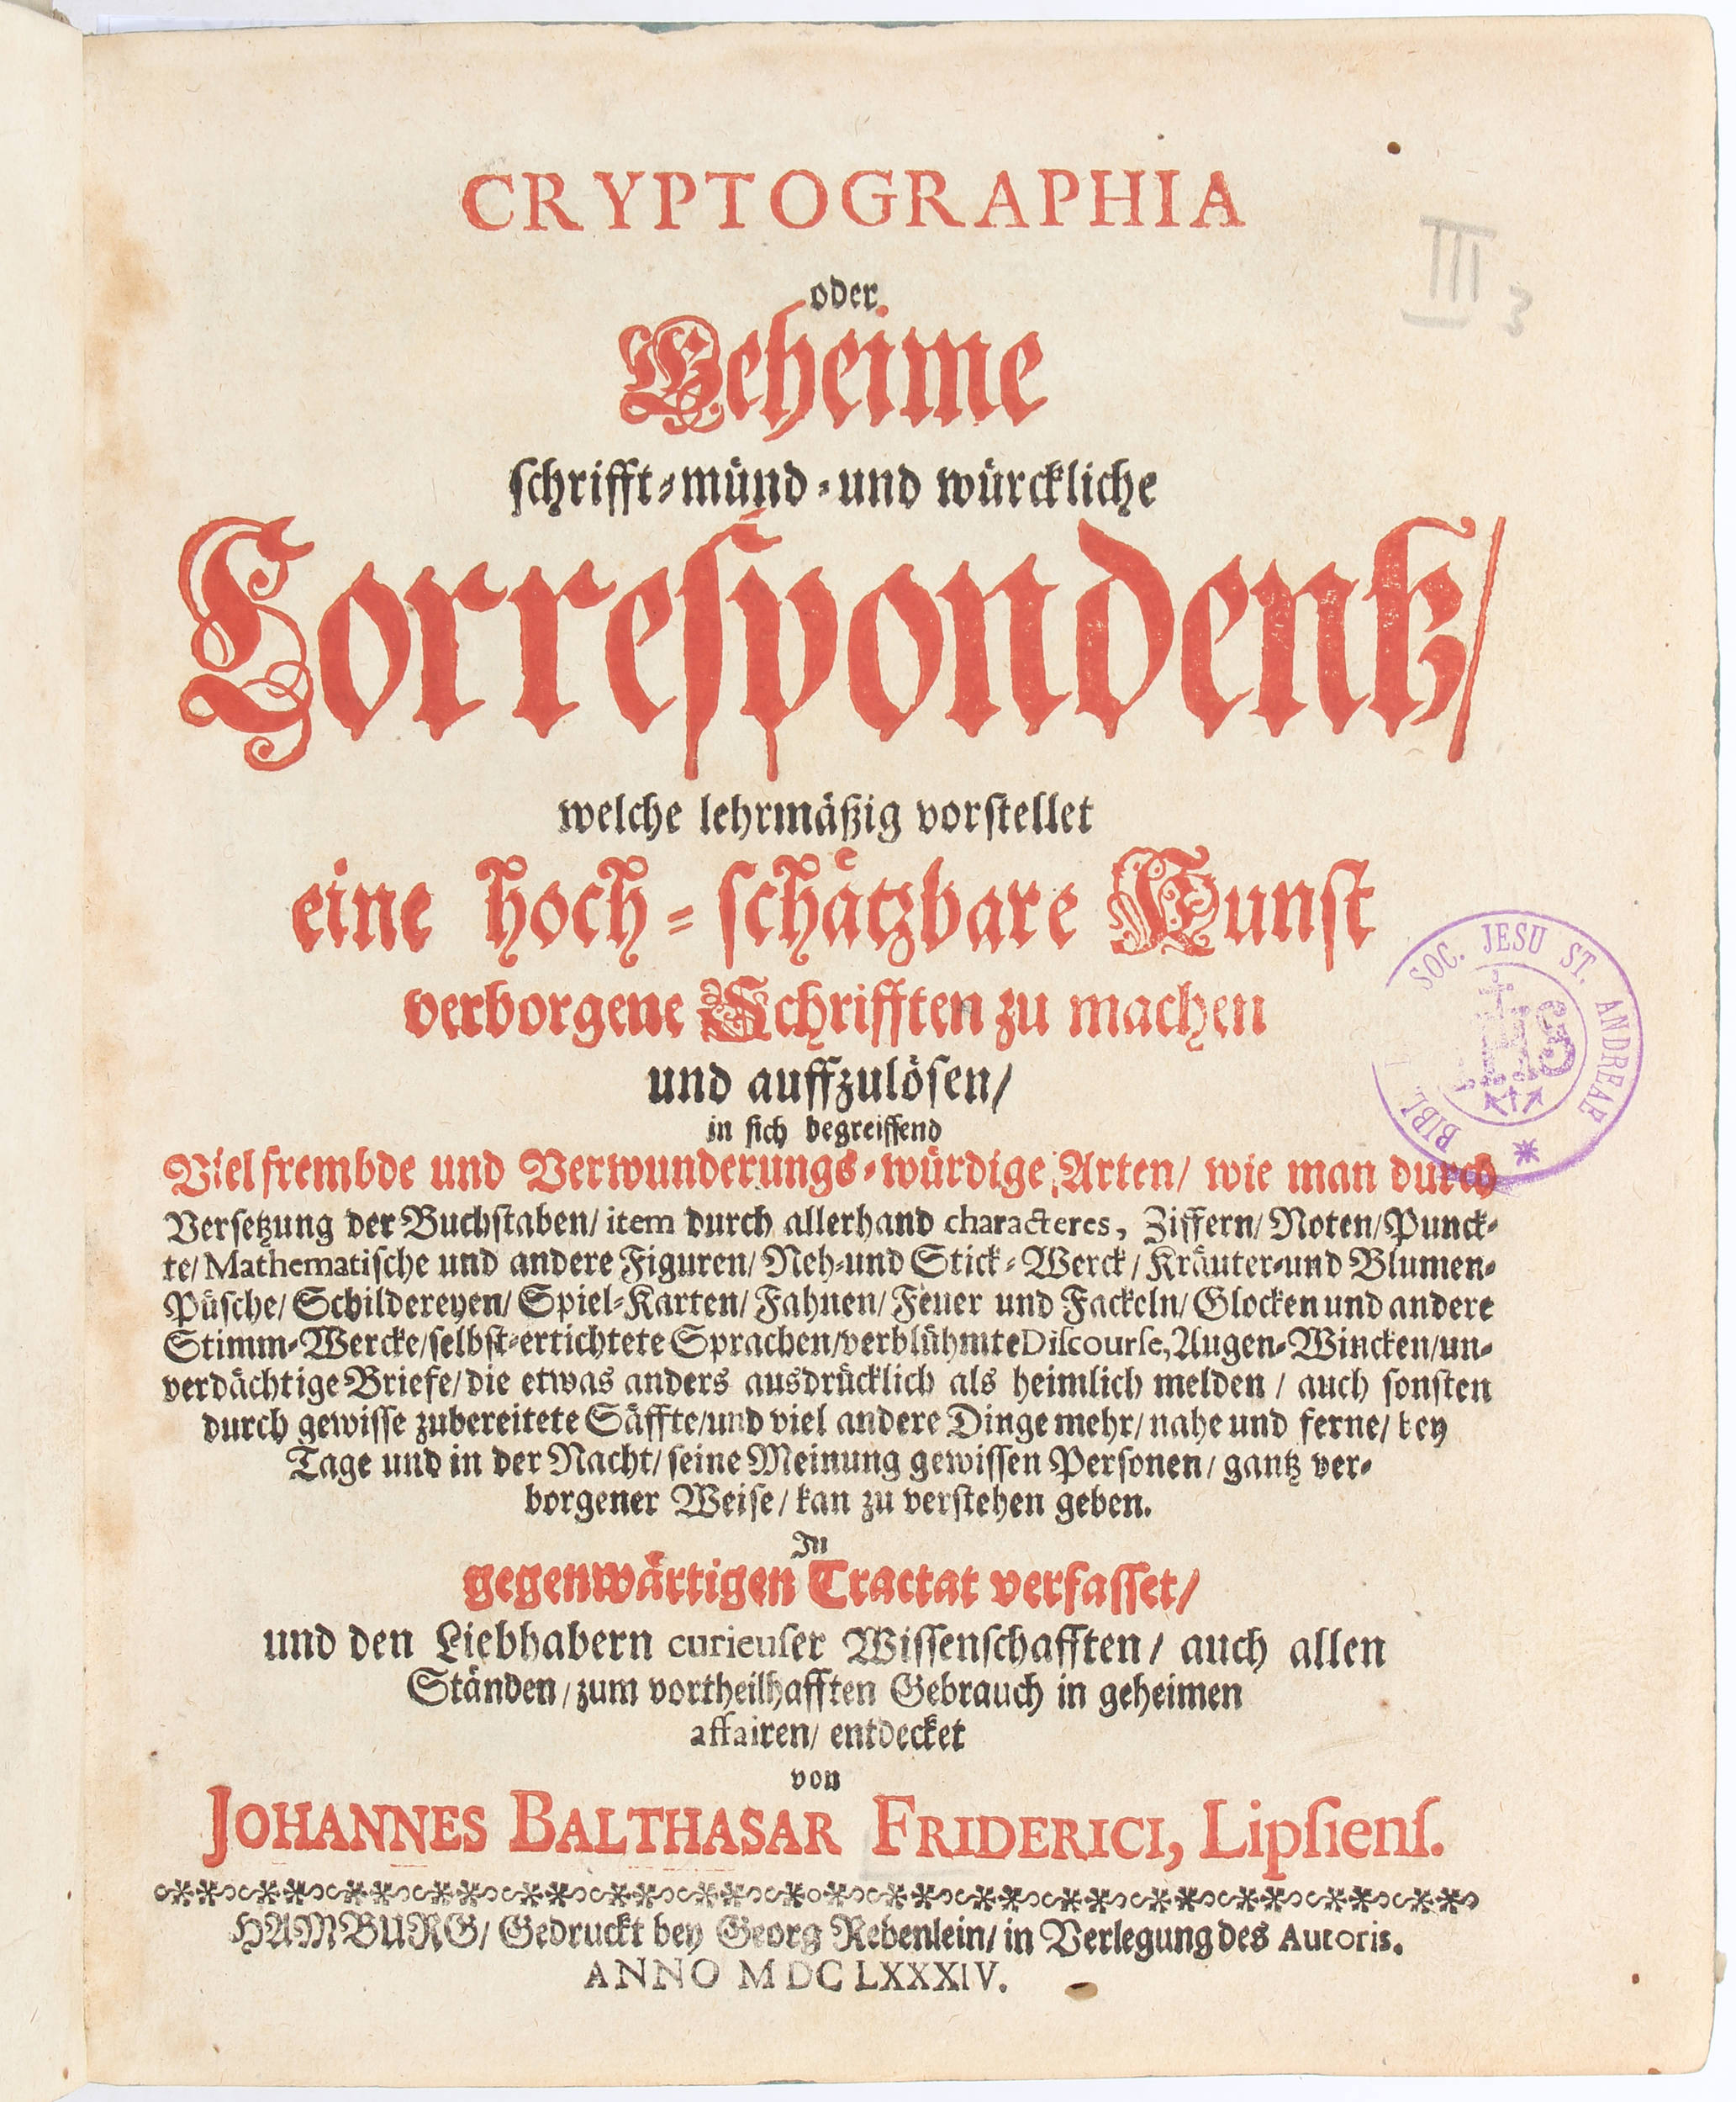 CRYPTOGRAPHIA
III 3
oder
Geheime
schrifft-münd-und würckliche
Correspondentz/
welche lehrmäßig vorstellet
eine hoch-schätzbare Kunst
verborgene Schrifften zu machen
und auffzulösen/
in sich begreiffend
Viel frembde und Verwunderungs-würdige Arten/ wie man durch
Versetzung der Buchstaben/ item durch allerhand characteres, Ziffern/ Noten/ Punck-
te/ Mathematische und andere Figuren/ Neh-und Stick-Werck/ Kräuter-und Blumen-
Püsche/ Schildereyen/ Spiel-Karten/ Fahnen/ Feuer und Fackeln/ Glocken und andere
Stimm-Wercke/ selbst-ertichtete Sprachen/ verblühmte Discourse, Augen-Wincken/ un-
verdächtige Briefe/ die etwas anders ausdrücklich als heimlich melden/ auch sonsten
durch gewisse zubereitete Säffte/ und viel andere Dinge mehr/ nahe und ferne/ bey
Tage und in der Nacht/ seine Meinung gewissen Personen/ gantz ver-
borgener Weise/ kan zu verstehen geben.
In
gegenwärtigen Tractat verfasset/
und den Liebhabern curieuser Wissenschafften/ auch allen
Ständen/ zum vortheilhafften Gebrauch in geheimen
affairen/ entdecket
von
JOHANNES BALTHASAR FRIDERICI, Lipsiens.
HAMBURG/ Gedruckt bey Georg Rebenlein/ in Verlegung des Autoris.
ANNO MDCLXXXIV.
BIBL. SOC. JESU ST. ANDREAE
IHS